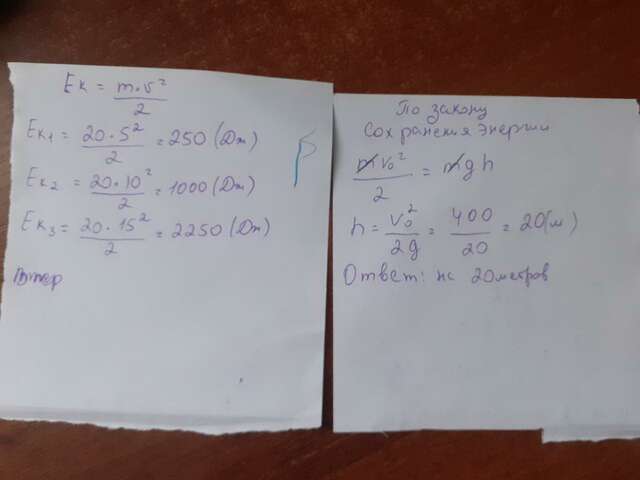 Eк = m·v²/2
Eк₁ = 20·5²/2 = 250 (Дж)
Eк₂ = 20·10²/2 = 1000 (Дж)
Eк₃ = 20·15²/2 = 2250 (Дж)
По закону
сохранения энергии
mv₀²/2 = mgh
h = v₀²/2g = 400/20 = 20(м)
Ответ: на 20 метров